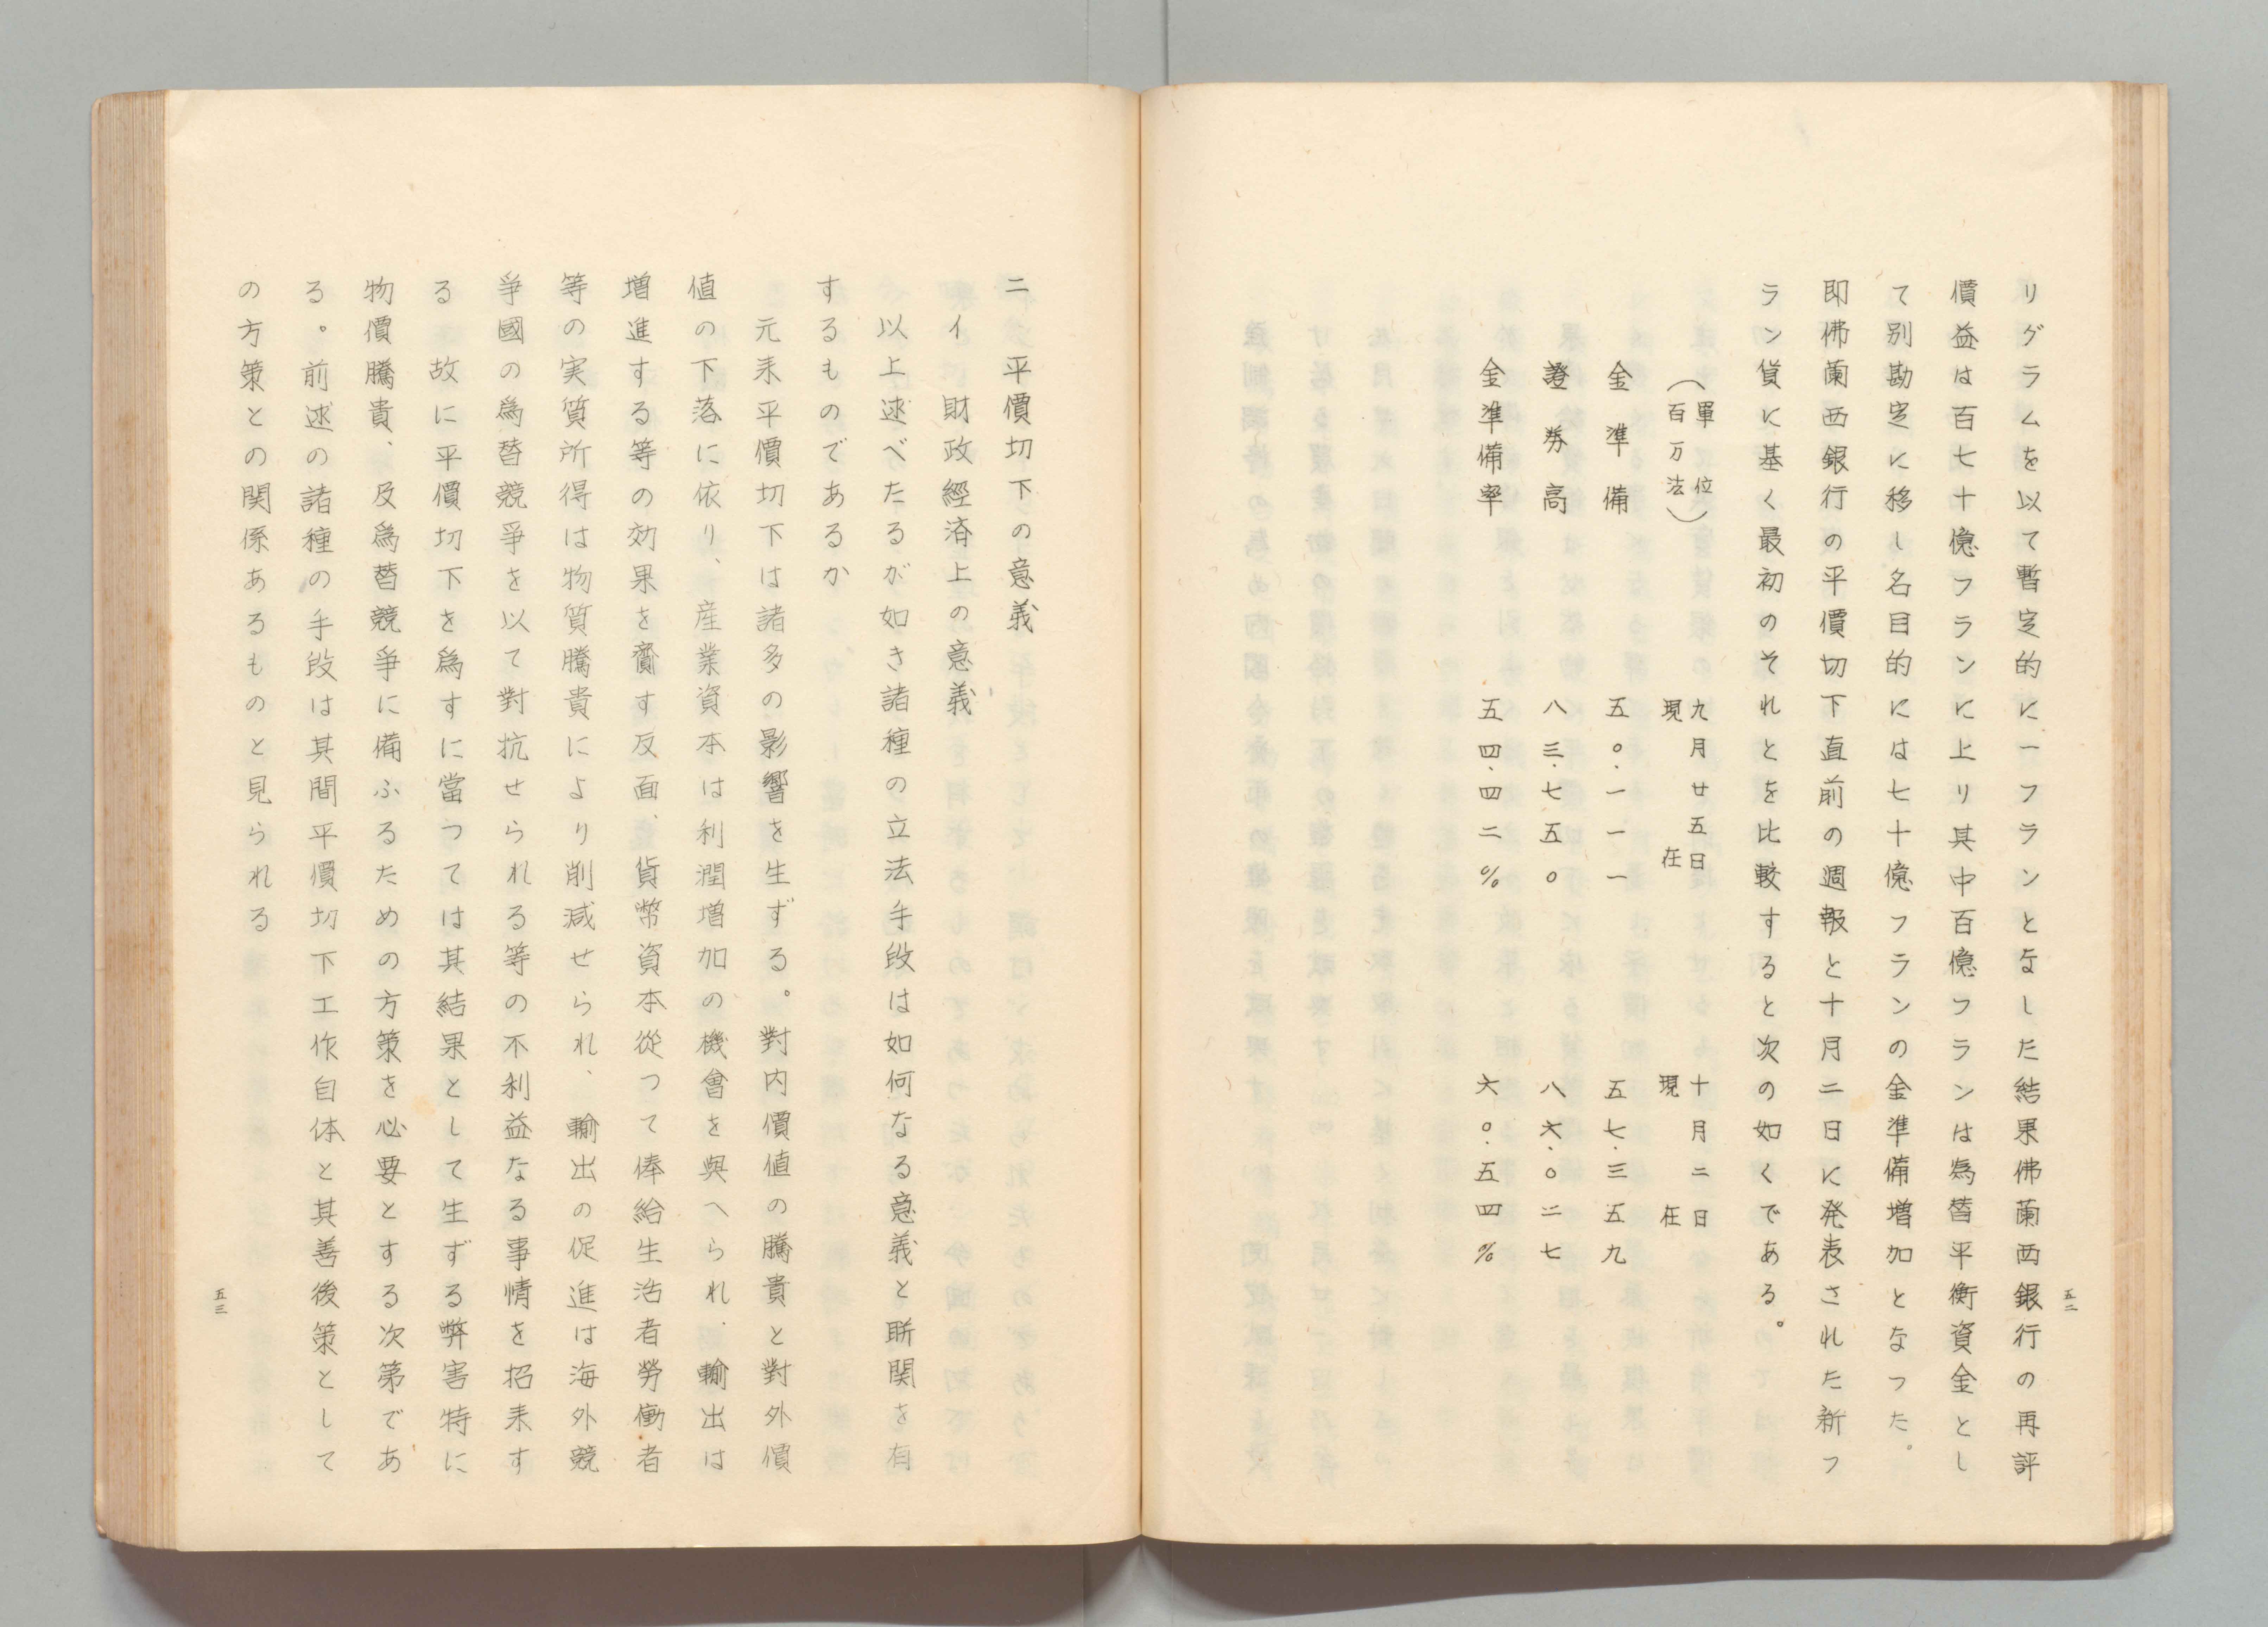 リグラムを以て暫定的に一フランとなした結果佛蘭西銀行の再評
價益は百七十億フランに上り其中百億フランは為替平衡資金とし
て別勘定に移し名目的には七十億フランの金準備増加となつた。
即佛蘭西銀行の平價切下直前の週報と十月二日に発表された新フ
ラン貨に基く最初のそれとを比較すると次の如くである。
(單位百万法) 九月廿五日現在 十月二日現在
金準備 五〇.一一一 五七.三五九
證券高 八三.七五〇 八六.〇二七
金準備率 五四.四二% 六〇.五四%
五二
二 平價切下の意義
イ 財政經済上の意義
以上述べたるが如き諸種の立法手段は如何なる意義と聯関を有
するものであるか
元来平價切下は諸多の影響を生ずる。對内價値の騰貴と對外價
値の下落に依り、産業資本は利潤増加の機會を與へられ.輸出は
増進する等の効果を齎す反面、貨幣資本從つて俸給生活者勞働者
等の実質所得は物質騰貴により削減せられ、輸出の促進は海外競
爭國の為替競爭を以て對抗せられる等の不利益なる事情を招来す
る 故に平價切下を為すに當つては其結果として生ずる弊害特に
物價騰貴、及為替競爭に備ふるための方策を必要とする次第であ
る。前述の諸種の手段は其間平價切下工作自体と其善後策として
の方策との関係あるものと見られる
五三